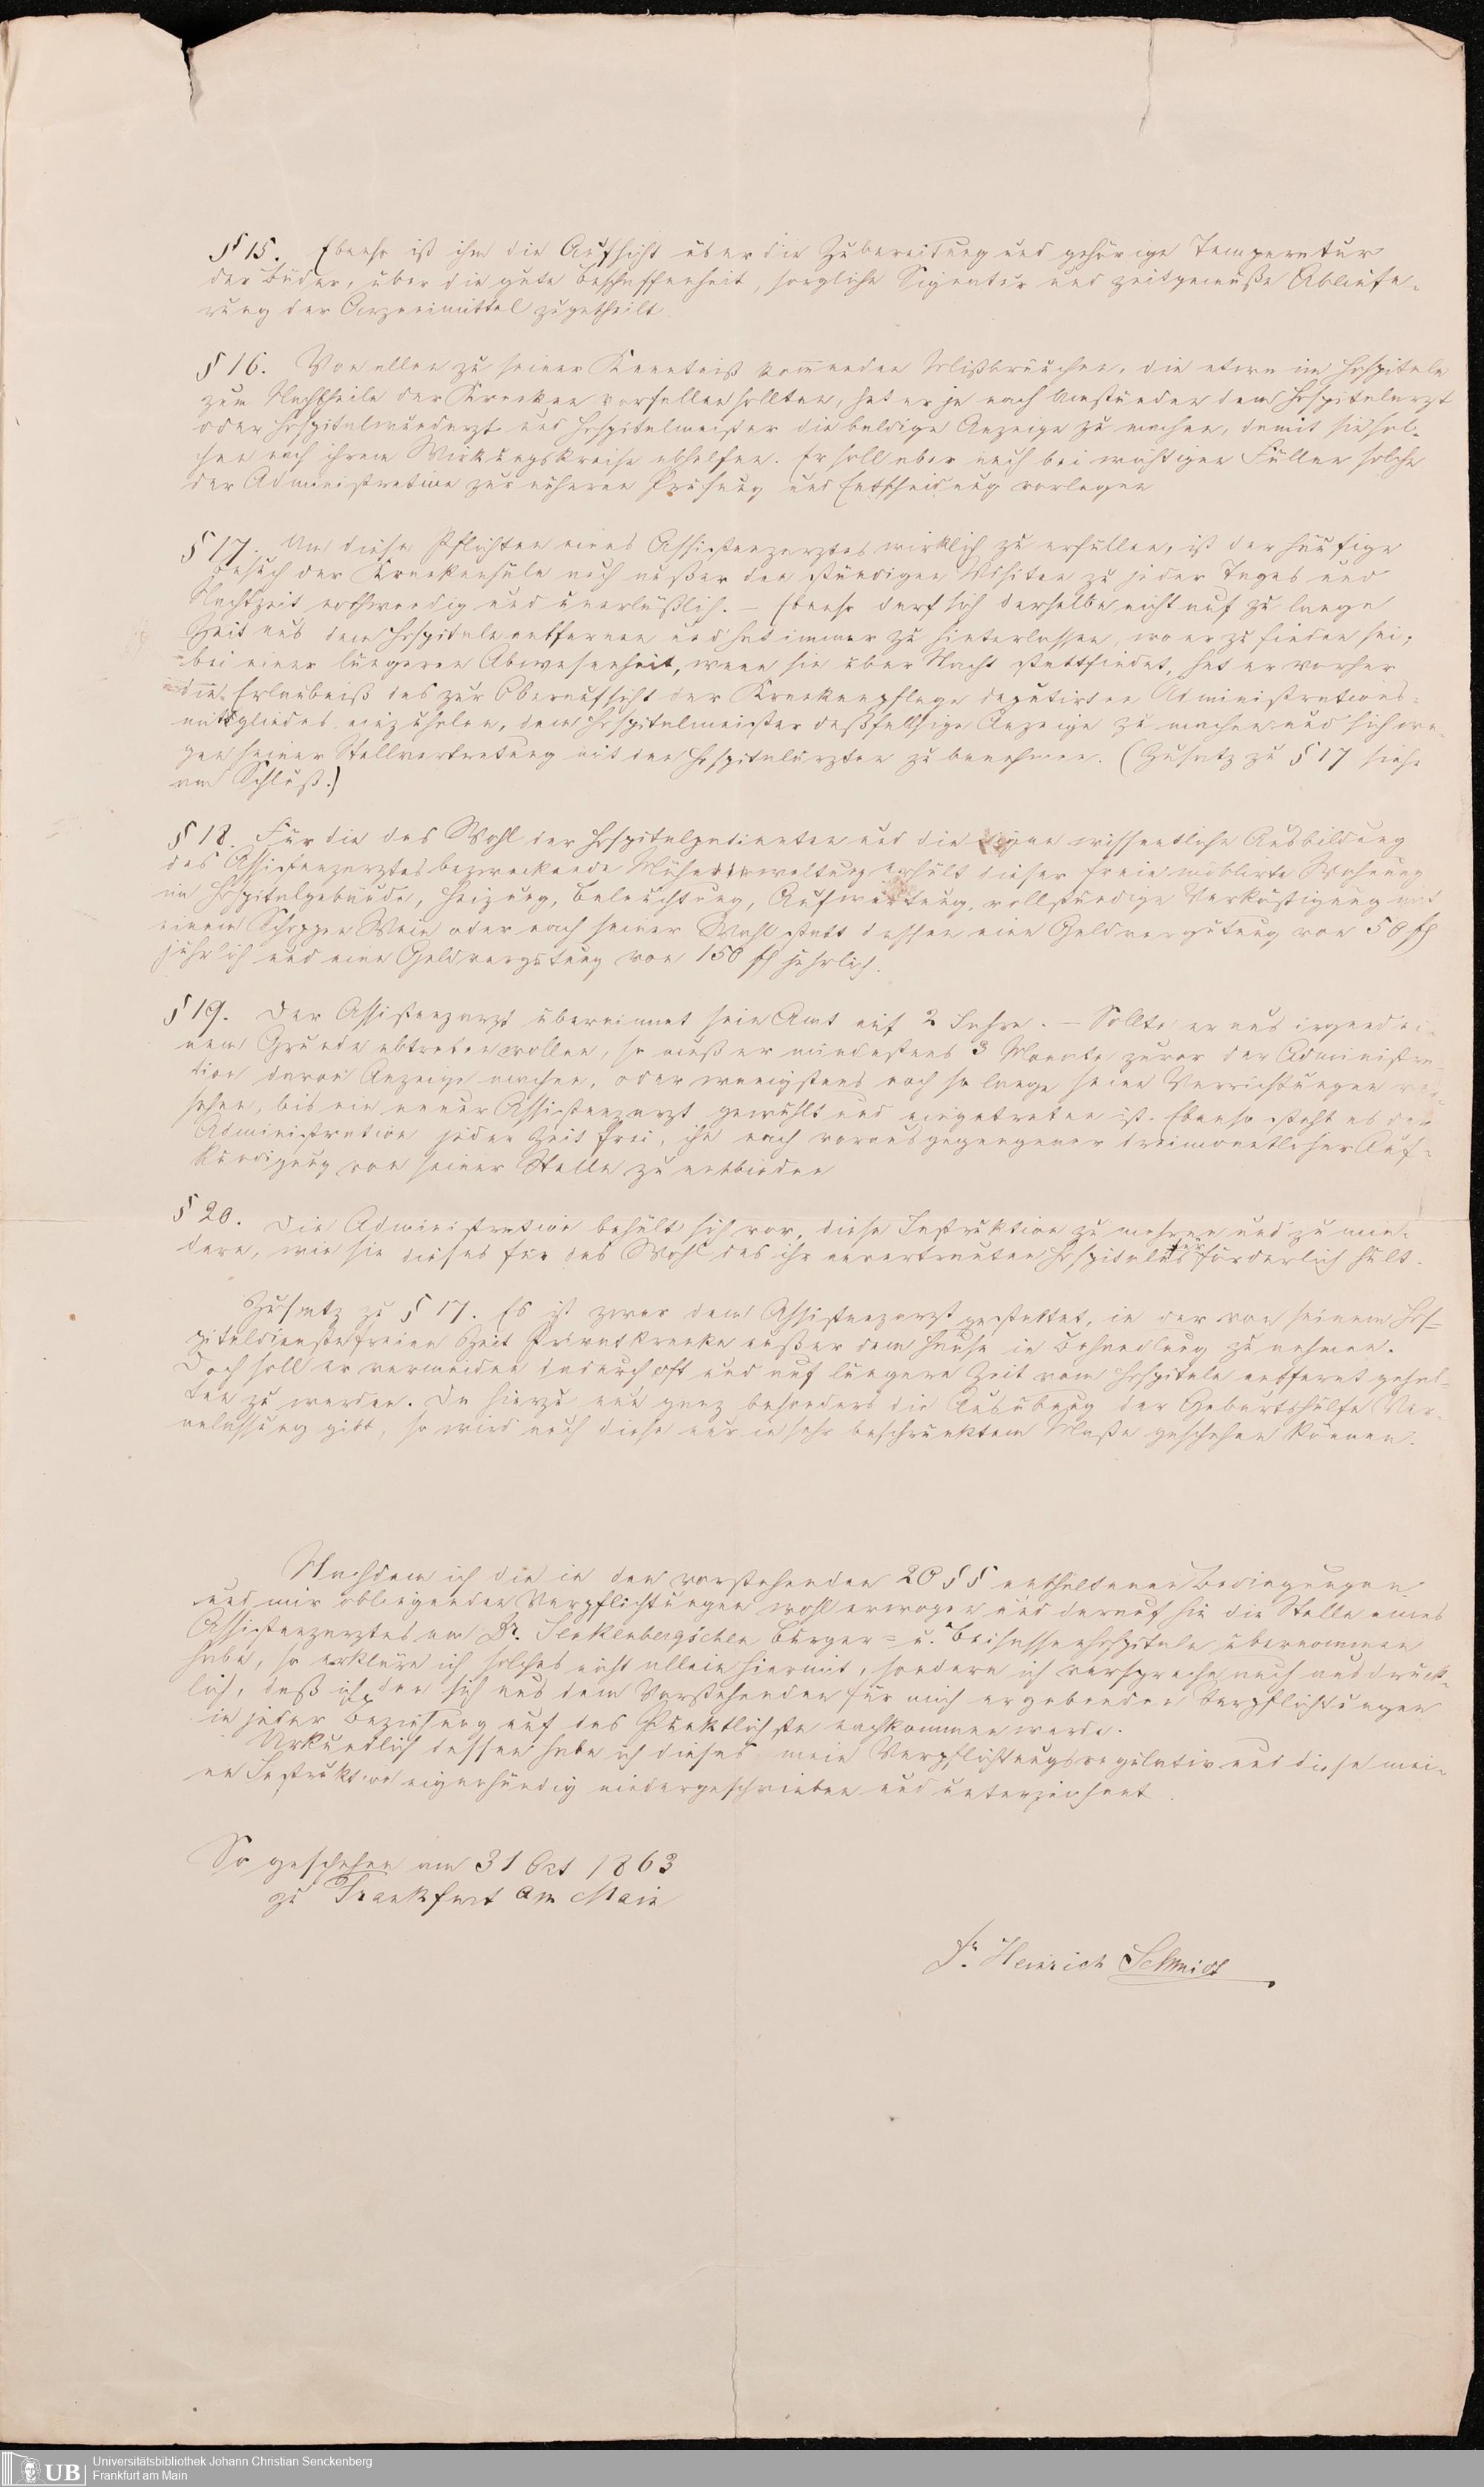 § 15. Ebenso ist ihm die Aufsicht über die Zubereitung und gehörige Temperatur
der Bäder, über die gute Beschaffenheit, sorgliche Signatur und zeitgemäße Abliefe-
rung der Arzneimittel zugetheilt.
§ 16. Von allen zu seiner Kenntniß kom̅enden Mißbräuchen, die etwa im Hospitale
zum Nachtheile der Kranken vorfallen sollten, hat er je nach Umständen dem Hospitalarzt
oder Hospitalwundarzt und Hospitalmeister die baldige Anzeige zu machen, damit sie sol-
chen nach ihrem Wirkungskreise abhelfen. Er soll aber auch bei wichtigen Fällen solche
der Administration zur näheren Prüfung und Entscheidung vorlegen
§ 17. Um diese Pflichten eines Assistenzarztes wirklich zu erfüllen, ist der häufige
Besuch der Krankensäle auch außer den ständigen Visiten zu jeder Tages und
Nachtzeit nothwendig und unerläßlich. – Ebenso darf sich derselbe nicht auf zu lange
Zeit aus dem Hospitale entfernen und hat immer zu hinterlassen, wo er zu finden sei;
bei einer längeren Abwesenheit, wenn sie über Nacht stattfindet, hat er vorher
die Erlaubniß des zur Oberaufsicht der Krankenpflege deputirten Administrations-
mitgliedes einzuholen, dem Hospitalmeister deßfallsige Anzeige zu machen und sich we-
gen seiner Stellvertretung mit den Hospitalärzten zu benehmen. (Zusatz zu § 17 siehe
am Schluß.)
§ 18. Für die das Wohl der Hospitalpatienten und die eigne wissentliche Ausbildung
des Assistenzarztes bezweckende Müheverwaltung erhält dieser freie möblirte Wohnung
im Hospitalgebäude, Heizung, Beleuchtung, Aufwartung, vollständige Verköstigung mit
einem Schoppen Wein oder nach seiner Wahl statt dessen eine Geldvergütung von 50 fl
jährlich und eine Geldvergütung von 150 fl jährlich.
§ 19. Der Assistenzarzt übernimmt sein Amt auf 2 Jahre. – Sollte er aus irgend ei-
nem Grunde abtreten wollen, so muß er mindestens 3 Monate zuvor der Administra-
tion davon Anzeige machen, oder wenigstens noch so lange seine Verrichtungen ver-
sehen, bis ein neuer Assistenzarzt gewählt und eingetreten ist. Ebenso steht es der
Administration jeder Zeit frei, ihn nach vorausgegangener dreimonatlicher Auf-
kündigung von seiner Stelle zu entbinden
§ 20. Die Administration behält sich vor, diese Instruktion zu mehren und zu min-
dern, wie sie dieses für das Wohl des ihr anvertrauten Hospitales für förderlich hält.
Zusatz zu § 17. Es ist zwar dem Assistenzarzt gestattet, in der von seinem Hos-
pitaldienste freien Zeit Privatkranke außer dem Hause in Behandlung zu nehmen.
Doch soll er vermeiden dadurch oft und auf längere Zeit vom Hospitale entfernt gehal-
ten zu werden. Da hierzu nun ganz besonders die Ausübung der Geburtshülfe Ver-
anlassung gibt, so wird auch diese nur in sehr beschränktem Maße geschehen können.
Nachdem ich die in den vorstehenden 20 §§ enthaltenen Bedingungen
und mir obliegenden Verpflichtungen wohl erwogen und darauf hin die Stelle eines
Assistenzarztes am Dr. Senkenbergischen Bürger- u. Beisassenhospitale übernommen
habe, so erkläre ich solches nicht allein hiermit, sondern ich verspreche auch ausdrück-
lich, daß ich den sich aus dem Vorstehenden für mich ergebenden Verpflichtungen
in jeder Beziehung auf das Pünktlichste nachkommen werde.
Urkundlich dessen habe ich dieses mein Verpflichtungsregulativ und diese mei-
ne Instruktion eigenhändig niedergeschrieben und unterzeichnet.
So geschehen am 31 Oct 1863
zu Frankfurt am Main
Dr. Heinrich Schmidt
UB
Universitätsbibliothek Johann Christian Senckenberg
Frankfurt am Main